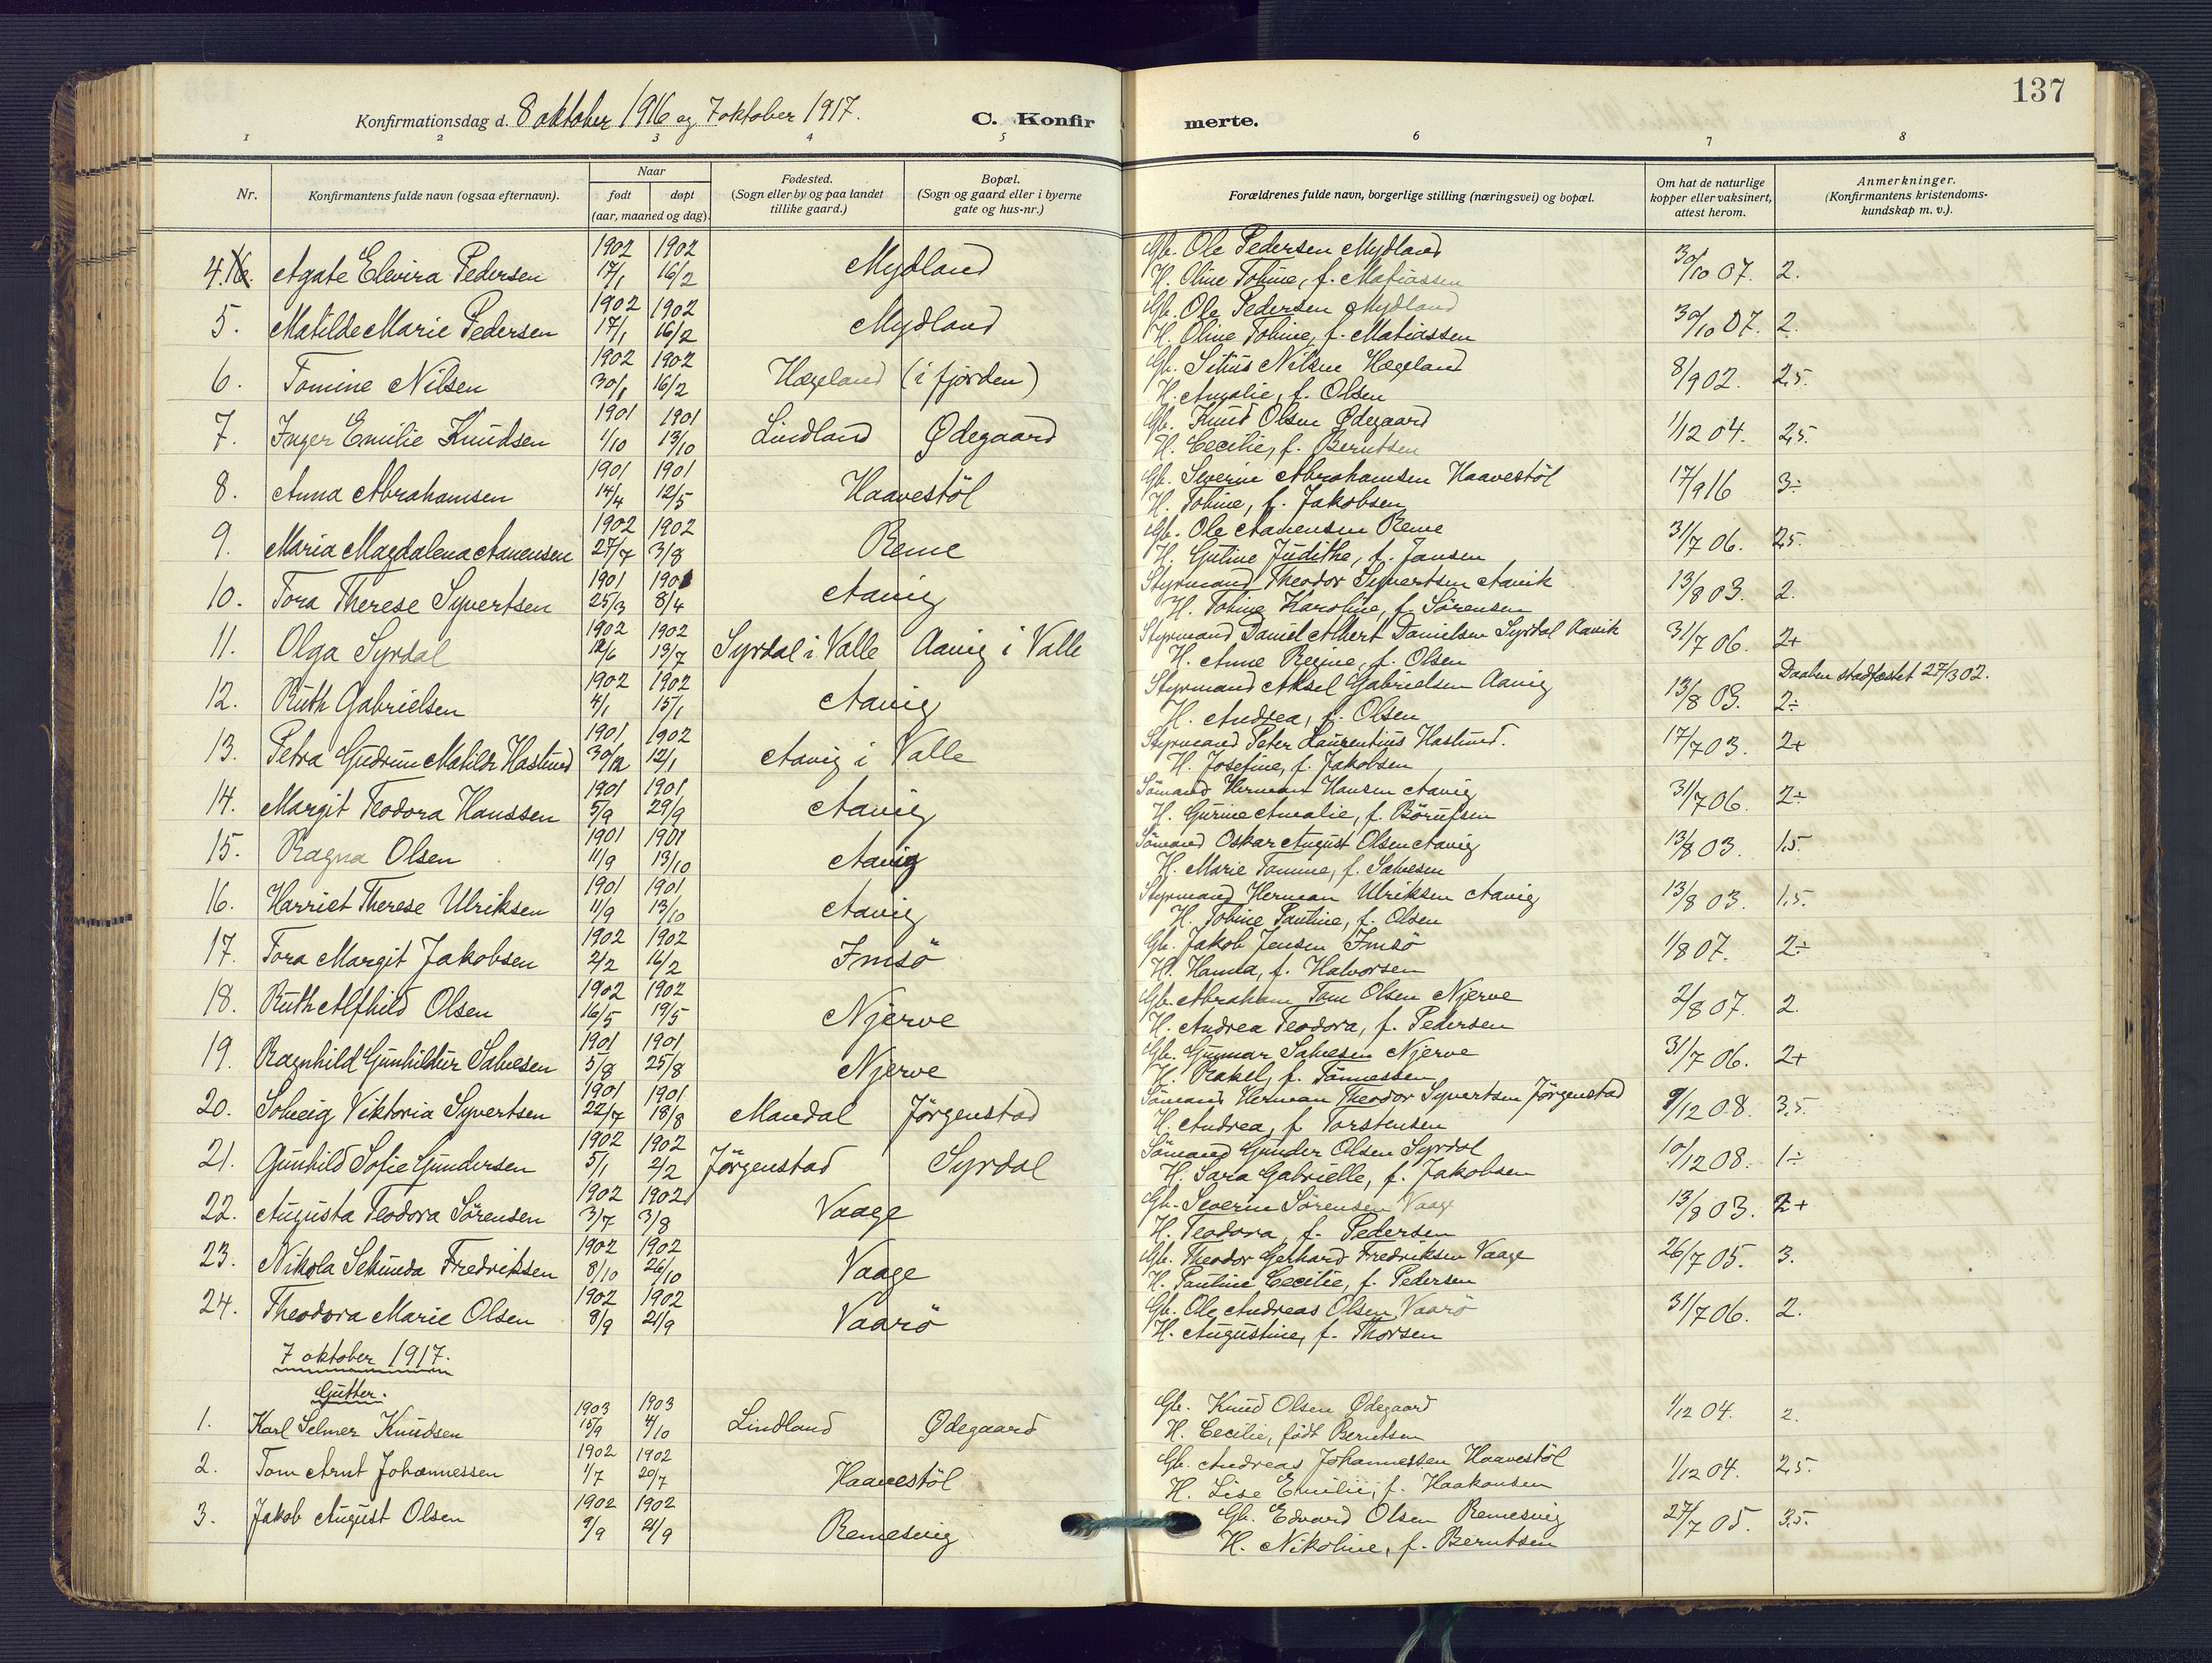 137
Konfirmationsdag d. 8 oktober 1916 og 7 oktober 1917.
C. Konfir
merte.
1 2 3 4 5 6 7 8
Nr.
Konfirmantens fulde navn (ogsaa efternavn).
Naar
født døpt
(aar, maaned og dag).
Fødested.
(Sogn eller by og paa landet
tillike gaard.)
Bopæl.
(Sogn og gaard eller i byerne
gate og hus-nr.)
Forældrenes fulde navn, borgerlige stilling (næringsvei) og bopæl.
Om hat de naturlige
kopper eller vaksinert,
attest herom.
Anmerkninger.
(Konfirmantens kristendoms-
kundskap m. v.).
1902 1902 Gb. Ole Pedersen Mydland
4. Agate Elevira Pedersen 17/1 16/2 Mydland 30/10 07. 2.
H. Oline Tobine, f. Matiassen
1902 1902 Gb. Ole Pedersen Mydland
5. Matilde Marie Pedersen 17/1 16/2 Mydland 30/10 07. 2.
H. Oline Tobine, f. Matiassen
1902 1902 Gb. Nilsen Hægeland
6. Tomine Nilsen 30/1 16/2 Hægeland (i fjorden) 8/9 02. 2,5.
H. Amalie, f. Olsen
1901 1901 Gb. Knud Olsen Ødegaard
7. Inger Emilie Knudsen 1/10 13/10 Lindland Ødegaard 1/12 04. 2,5.
H. Cecilie, f. Berntsen
1901 1901 Gb. Severin Abrahamsen Haavestöl
8. Anna Abrahamsen 14/4 12/5 Haavestöl 17/9 16 3÷
H. Tobine, f. Jakobsen
1902 1902 Gb. Ole Aanensen Reme
9. Maria Magdalena Aanensen 27/7 3/8 Reme 31/7 06. 2,5.
H. Gutine Judithe, f. Jansen
1901 1901 Styrmand Theodor Syvertsen Aavik
10. Tora Therese Syvertsen 25/3 8/4 Aavig 13/8 03. 2.
H. Tobine Karoline, f. Sörensen
1902 1902 Styrmand Daniel Albert Danielsen Syrdal Aavik
11. Olga Syrdal 12/6 13/7 Syrdal i Valle Aavig i Valle 31/7 06. 2+
H. Anne Regine, f. Olsen
Daaben stadfæstet 27/3 02.
1902 1902 Styrmand Aksel Gabrielsen Aavig
12. Ruth Gabrielsen 4/1 15/1 Aavig 13/8 03. 2÷
H. Andrea, f. Olsen
1901 1902 Styrmand Peter Laurentius Hastund.
13. Petra Gudrun Matilde Hastund 30/12 12/1 Aavig i Valle 17/7 03. 2+
H. Josefine, f. Jakobsen
1901 1901 Sömand Herman Hansen Aavig
14. Margit Teodora Hanssen 5/9 29/9 Aavig 31/7 06. 2÷
H. Gurine Amalie, f. Börufsen
1901 1901 Sömand Oskar August Olsen Aavig
15. Ragna Olsen 11/9 13/10 Aavig 13/8 03. 1,5.
H. Marie Tomine, f. Salvesen
1901 1901 Styrmand Herman Ulriksen Aavig
16. Harriet Therese Ulriksen 11/9 13/10 Aavig 13/8 03. 1,5.
H. Tobine Pauline, f. Olsen
1902 1902 Gb. Jakob Jensen Imsö
17. Tora Margit Jakobsen 2/2 16/2 Imsö 1/8 07. 2÷
H. Hanna, f. Halvorsen
1902 1902 Gb. Abraham Tom Olsen Njerve
18. Ruth Alfhild Olsen 16/5 19/5 Njerve 2/8 07. 2.
H. Andrea Teodora, f. Pedersen
1901 1901 Gb. Gunnar Salvesen Njerve
19. Ragnhild Gunhildur Salvesen 5/8 25/8 Njerve 31/7 06. 2+
H. Rakel, f. Tönnessen
1901 1901 Sömand Herman Theodor Syvertsen Jörgenstad
20. Solveig Viktoria Syvertsen 22/7 18/8 Mandal Jörgenstad 9/12 08. 3,5.
H. Andrea, f. Torstensen
1902 1902 Sömand Gunder Olsen Syrdal
21. Gunhild Sofie Gundersen 5/1 2/2 Jörgenstad Syrdal 10/12 08. 1÷
H. Sara Gabrielle, f. Jakobsen
1902 1902 Gb. Severin Sörensen Vaage
22. Augusta Teodora Sörensen 3/7 3/8 Vaage 13/8 03. 2+
H. Teodora, f. Pedersen
1902 1902 Gb. Theodor Gerhard Fredriksen Vaage
23. Nikola Sekunda Fredriksen 8/10 26/10 Vaage 26/7 05. 3.
H. Pauline Cecilie, f. Pedersen
1902 1902 Gb. Ole Andreas Olsen Vaarö
24. Theodora Marie Olsen 8/9 21/9 Vaarö 31/7 06. 2.
H. Augustine, f. Thorsen
7 oktober 1917.
Gutter.
1903 1903 Gb. Knud Olsen Ødegaard
1. Karl Selmer Knudsen 15/9 4/10 Lindland Ødegaard 1/12 04. 2.
H. Cecilie, født Berntsen
1902 1902 Gb. Andreas Johannessen Haavestöl
2. Tom Arnt Johannessen 1/7 20/7 Haavestöl 1/12 04. 2,5.
H. Lise Emilie, f. Haakonsen
1902 1902 Gb. Edvard Olsen Remesvig
3. Jakob August Olsen 9/9 21/9 Remesvig 27/7 05. 3,5.
H. Nikoline, f. Berntsen